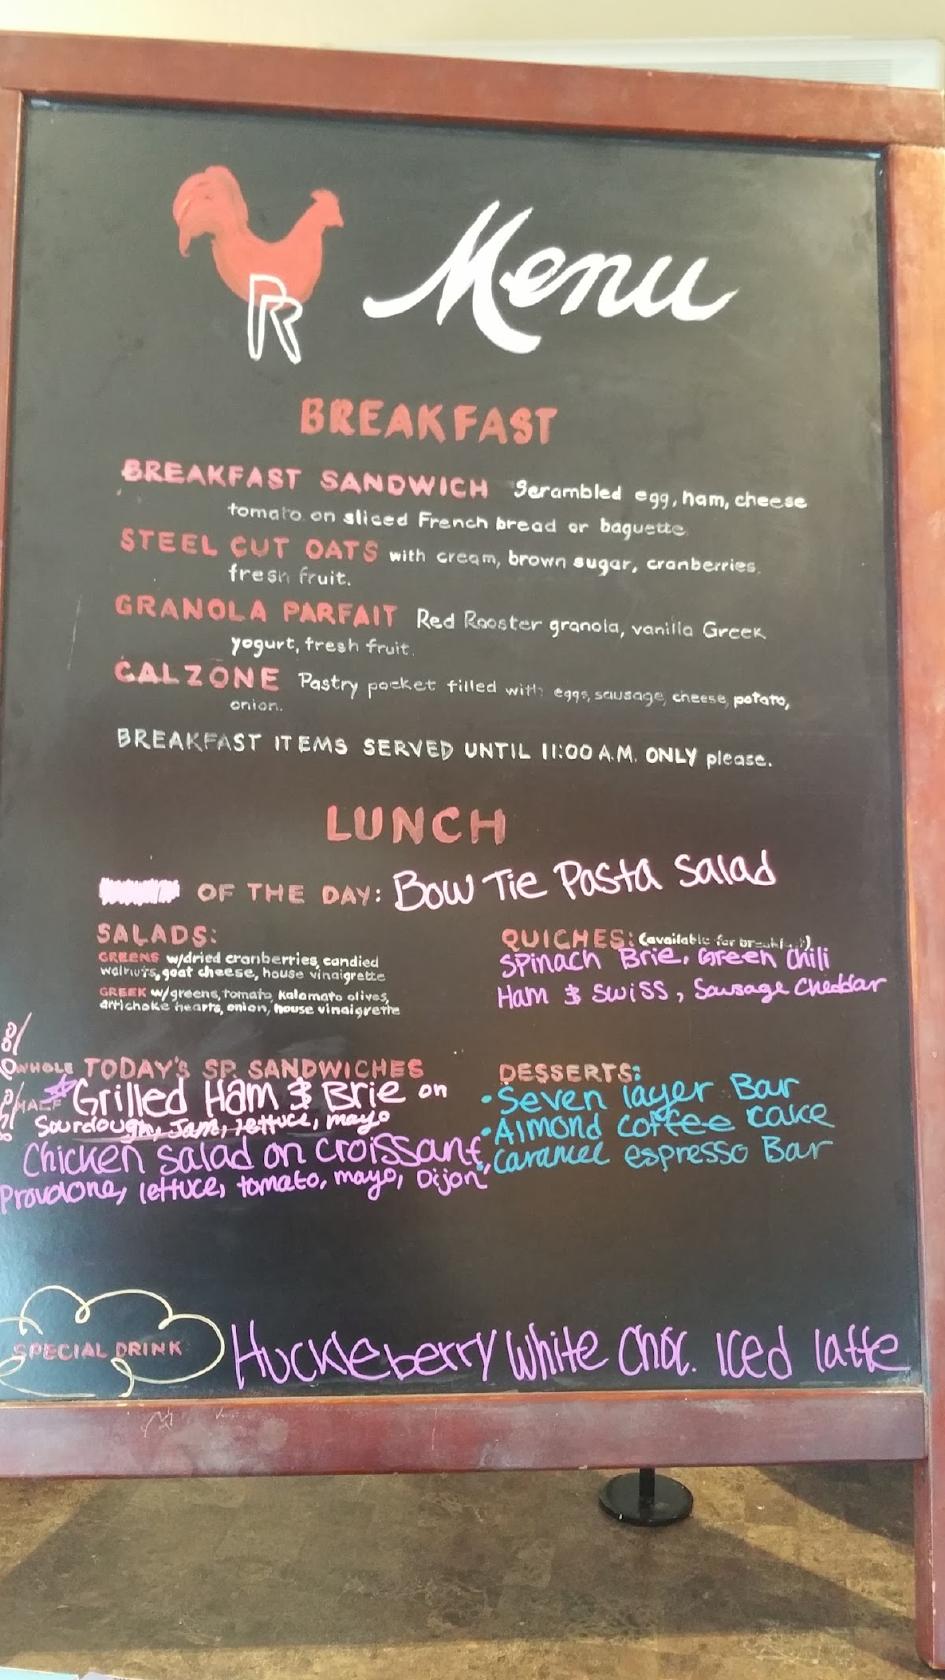 RR
Menu
BREAKFAST
BREAKFAST SANDWICH Scrambled egg, ham, cheese
tomato on sliced French bread or baguette
STEEL CUT OATS with cream, brown sugar, cranberries,
fresh fruit.
GRANOLA PARFAIT Red Rooster granola, vanilla Greek
yogurt, fresh fruit.
CALZONE Pastry pocket filled with eggs, sausage, cheese, potato,
onion.
BREAKFAST ITEMS SERVED UNTIL 11:00 A.M. ONLY please.
LUNCH
OF THE DAY: Bow Tie Pasta Salad
SALADS:
GREENS w/dried cranberries, candied
walnuts, goat cheese, house vinaigrette
GREEK w/greens, tomato, kalamato olives,
artichoke hearts, onion, house vinaigrette
QUICHES: (available for breakfast)
Spinach Brie, Green Chili
Ham & Swiss, Sausage Cheddar
WHOLE TODAY'S SP. SANDWICHES
HALF Grilled Ham & Brie on
Sourdough, Jam, lettuce, mayo
Chicken Salad on Croissant,
Provolone, lettuce, tomato, mayo, Dijon
DESSERTS:
• Seven layer Bar
• Almond coffee cake
• Caramel espresso Bar
SPECIAL DRINK Huckleberry White Choc. Iced latte